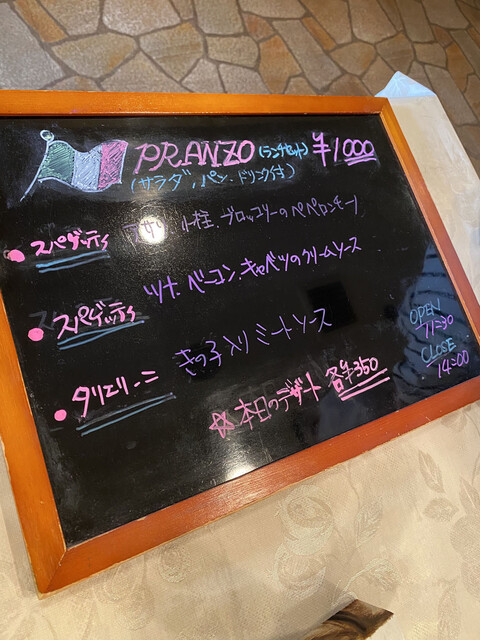 PRANZO (ランチセット) ¥1000
(サラダ, パン, ドリンク付)
スパゲッティ アサリ、小柱、ブロッコリーのペペロンチーノ
スパゲッティ ツナ、ベーコン、キャベツのクリームソース
タリエリーニ きの子入りミートソース
☆本日のデザート 各¥350
OPEN
11:30
CLOSE
14:00